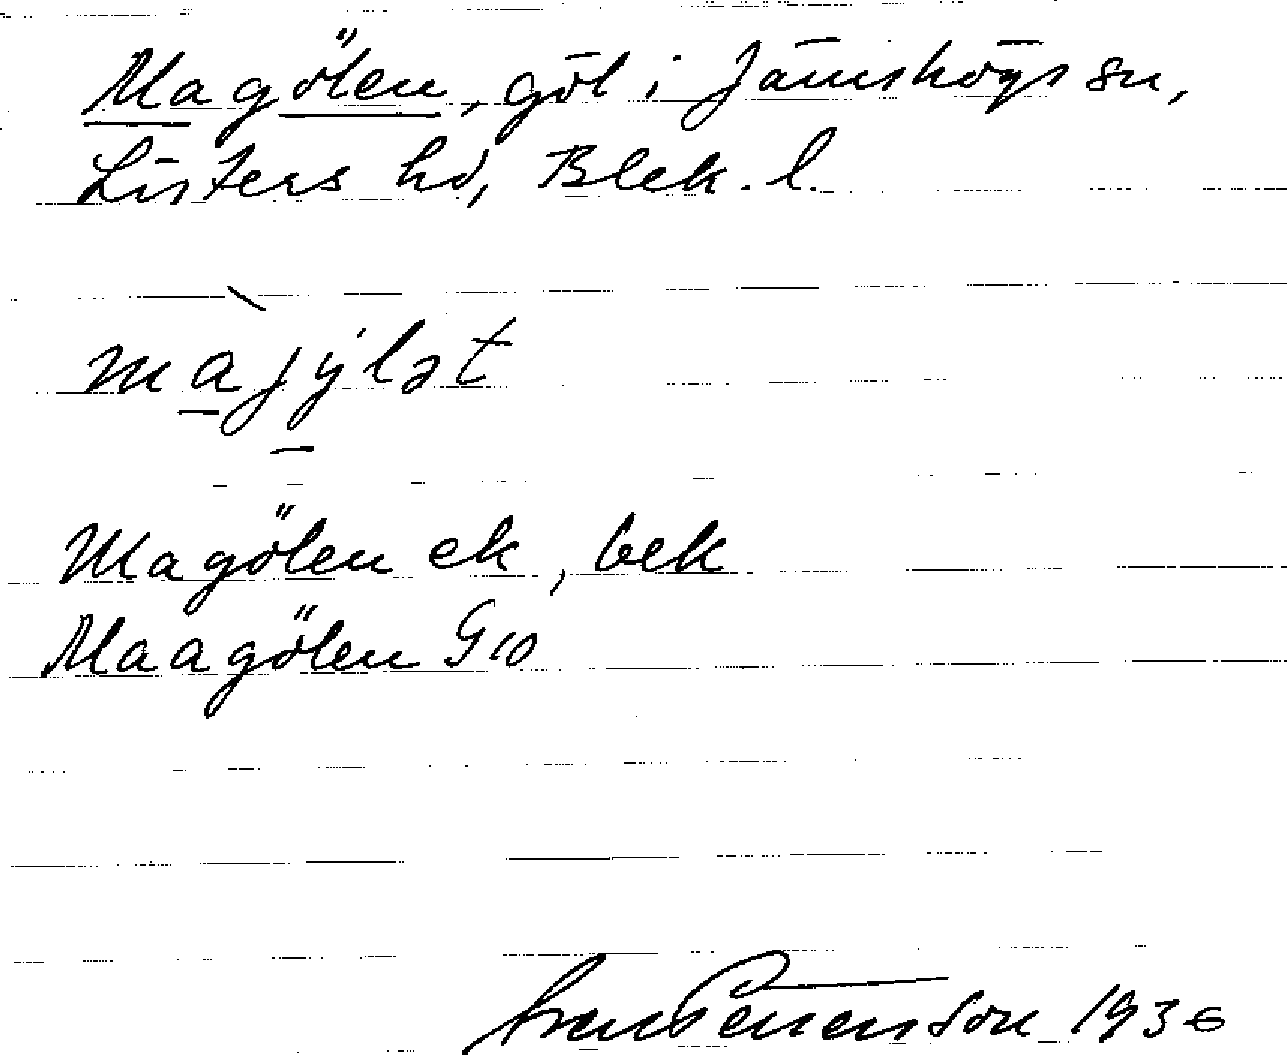 Magölen, göl i Jämshögs sn,
Listers hd, Blek. l.
màjýlət
Magölen ek, bek
Maagölen G10
Sven Benson 1936